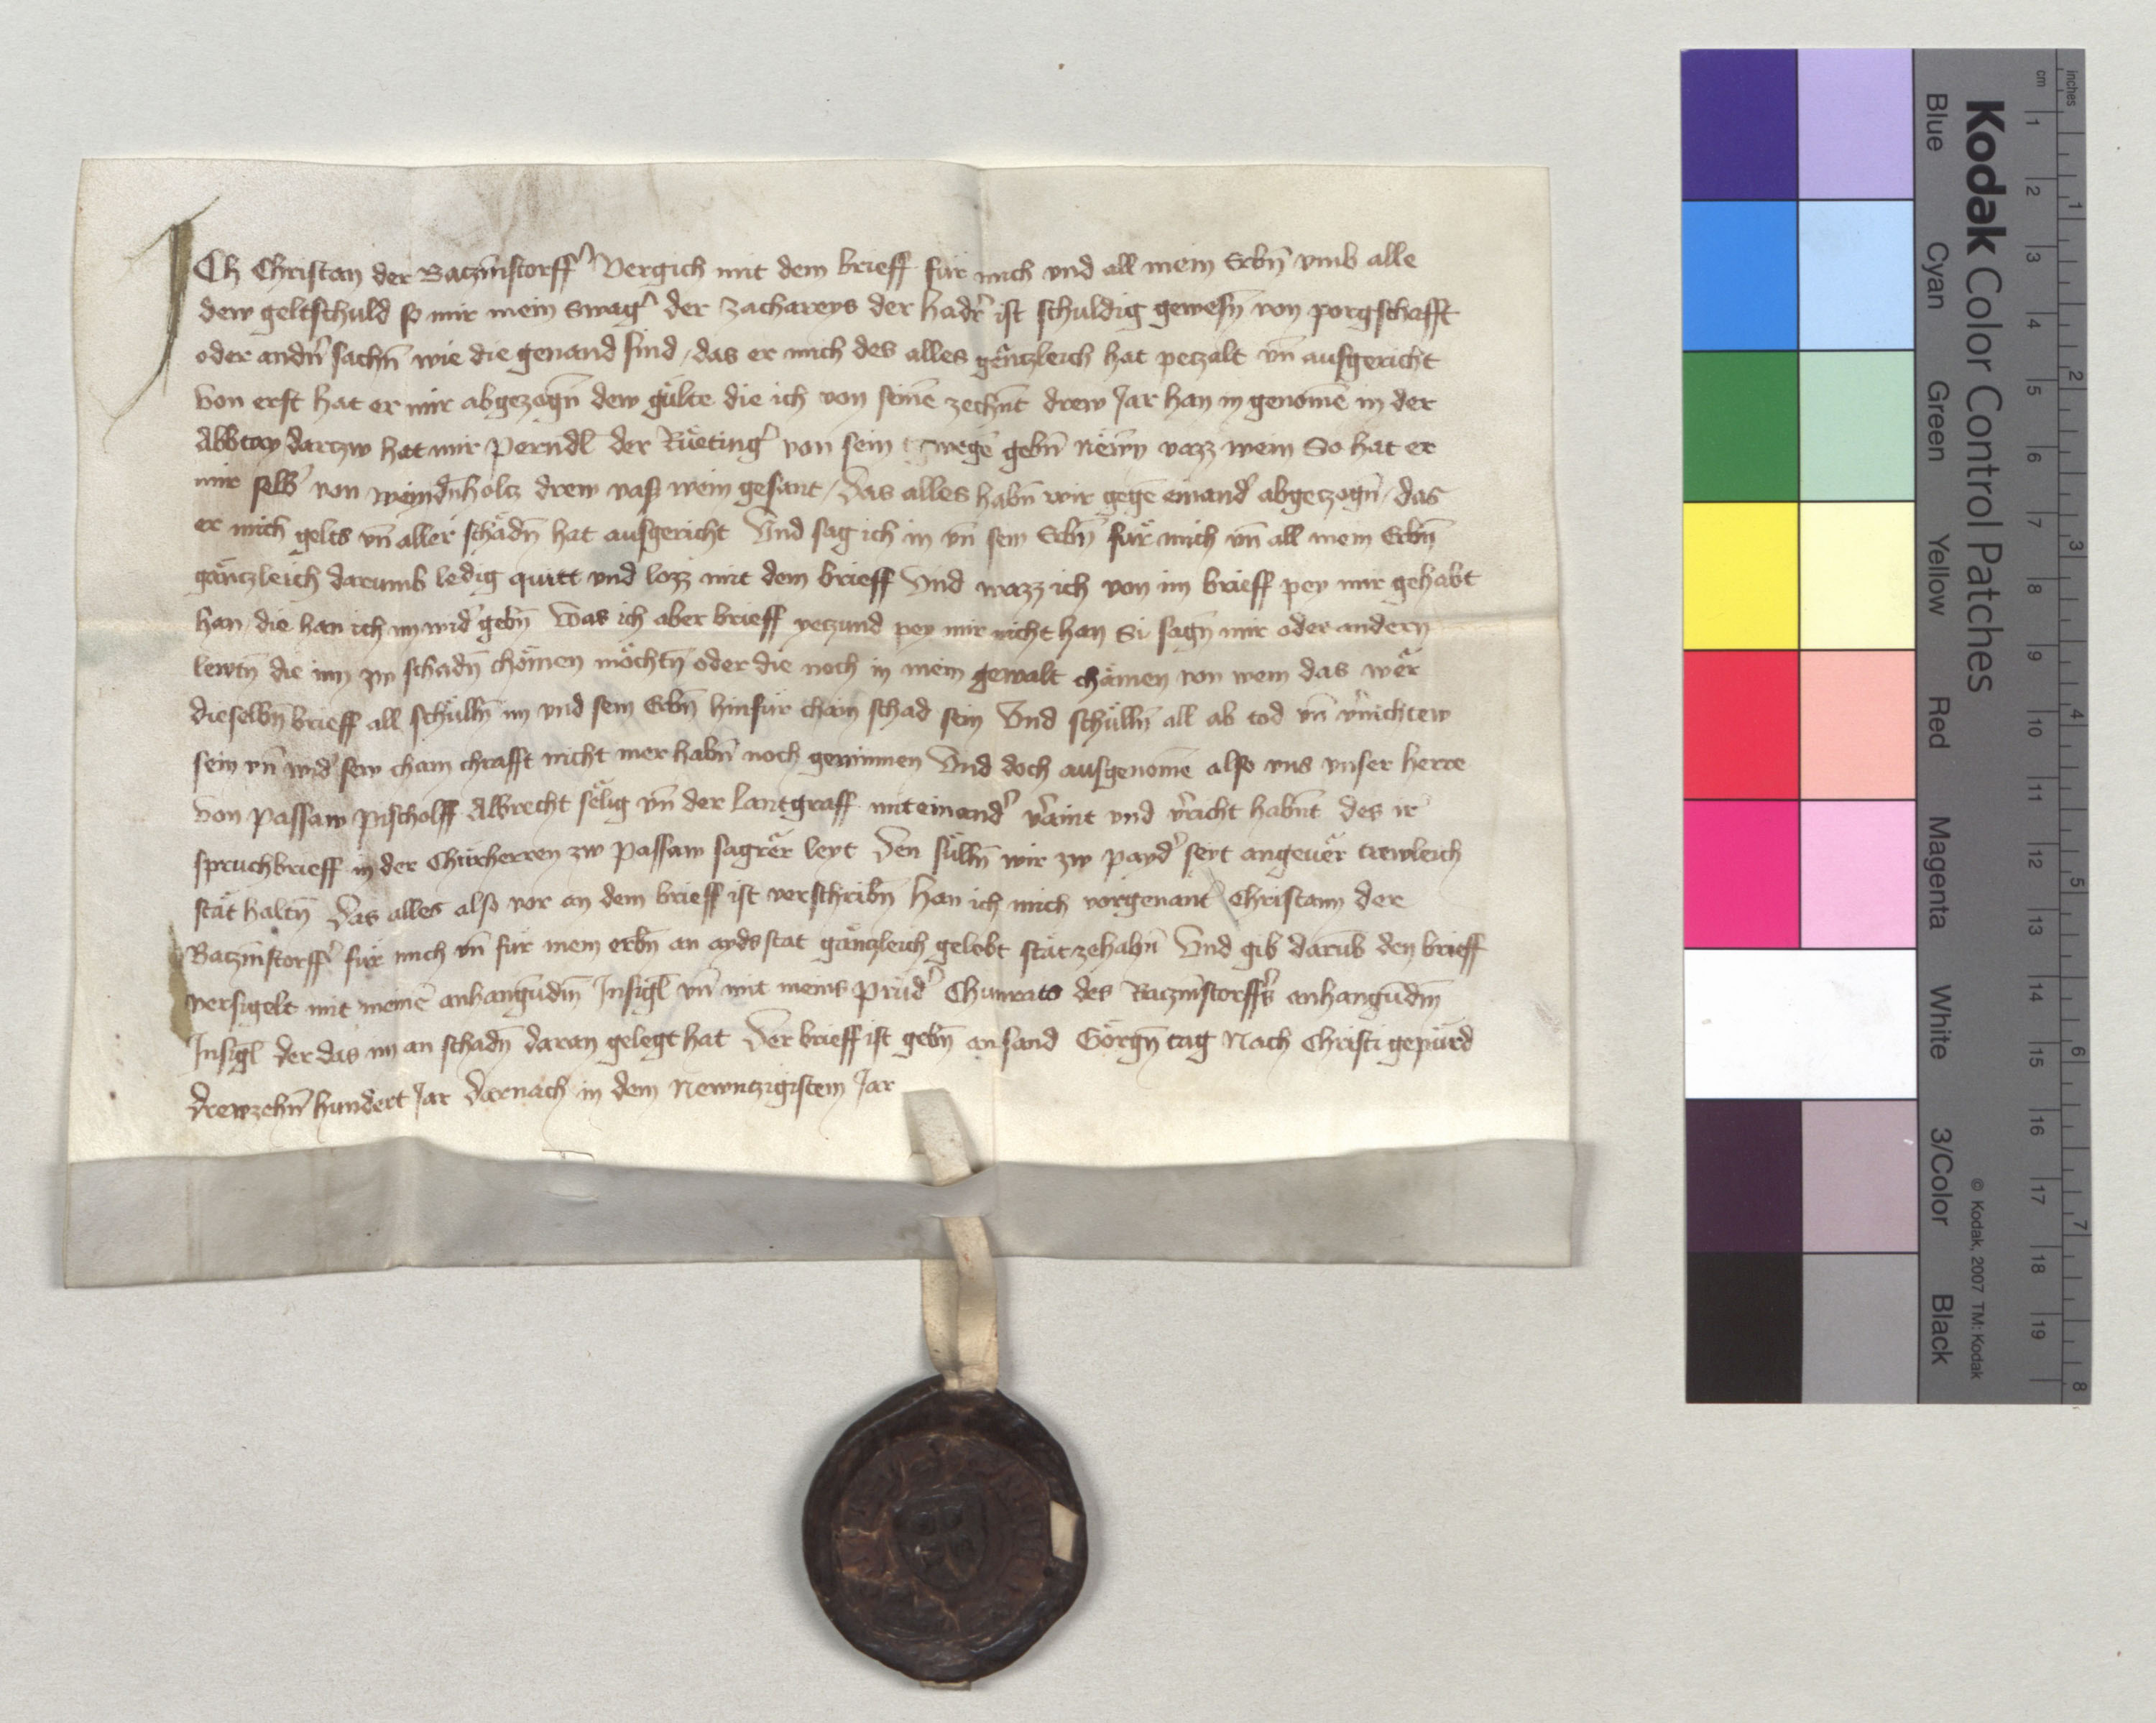 ICh Christan der Raczm̄storff᾽ Vergich mit dem brieff für mich vnd all mein Erbn̄ vmb alle
dew geltschuld so mir mein Swag᾽ der Zachareys der hadr᾽ ist schuldig gewesn̄ von porgschafft
oder andn̄ sachn̄ wie die genand sind / das er mich des alles gänczleich hat peczalt vn̄ ausgericht
Von erst hat er mir abgezogn̄ dew gülte die ich von seinē zechnt drew Jar han in genomē in der
Abbtay darczw hat mir Perndl der Rüeting᾽ von sein wegē gebn̄ Newn vazz wein So hat er
mir selb᾽ von weindn̄holcz drew vas wein gesant / Das alles habn̄ wir gegē einand᾽ abgeczogn̄ / das
er mich gelts vn̄ aller schädn̄ hat ausgericht Vnd sag ich in vn̄ sein Erbn̄ für mich vn̄ all mein Erbn̄
gänczleich darumb ledig quitt vnd lozz mit dem brieff Vnd wazz ich von im brieff pey mir gehabt
han / die han ich im wid᾽ gebn̄ Was ich aber brieff yeczund pey mir nicht han Si sagn̄ mir oder andern
lewtn̄ die im zw schadn̄ chömen möchtn̄ oder die noch in mein gewalt chämen von wem das wër
dieselbn̄ brieff all schülln̄ im vnd sein Erbn̄ hinfür chain schad sein Vnd schülln̄ all ab tod vn̄ v᾽nichtew
sein vn̄ wid᾽ sew chain chrafft nicht mer habn̄ noch gewinnen Vnd doch ausgenomē also vns vnser herre
von Passaw Pischolff Albrecht sëlig vn̄ der lantgraff miteinand᾽ v᾽aint vnd v᾽richt habnt des ir
spruchbrieff in der Chürherren zw Passaw sagrër leyt Den sülln̄ wir zw payd᾽ seyt angeuër trewleich
stät haltn̄ Das alles also vor an dem brieff ist verschribn̄ han ich mich vorgenant Christann der
Raczm̄storff᾽ für mich vn̄ für mein erbn̄ an aydsstat gänczleich gelobt stät zehabn̄ Vnd gib darūb den brieff
versigelt mit meinē anhangūdm̄ Insigl vn̄ mit meins prūd᾽ Chunrats des Raczm̄storff᾽s anhangūdm̄
Insigl der das im an schadn̄ daran gelegt hat Der brieff ist gebn̄ an sand Görgn̄ tag Nach Christi gepürd
drewzehn̄ hundert Jar Darnach in dem Newnczigistem Jar
Kodak Color Control Patches
Blue
Cyan
Green
Yellow
Red
Magenta
White
3/Color
Black
© Kodak, 2007 TM: Kodak
cm 1 2 3 4 5 6 7 8 9 10 11 12 13 14 15 16 17 18 19
inches 1 2 3 4 5 6 7 8